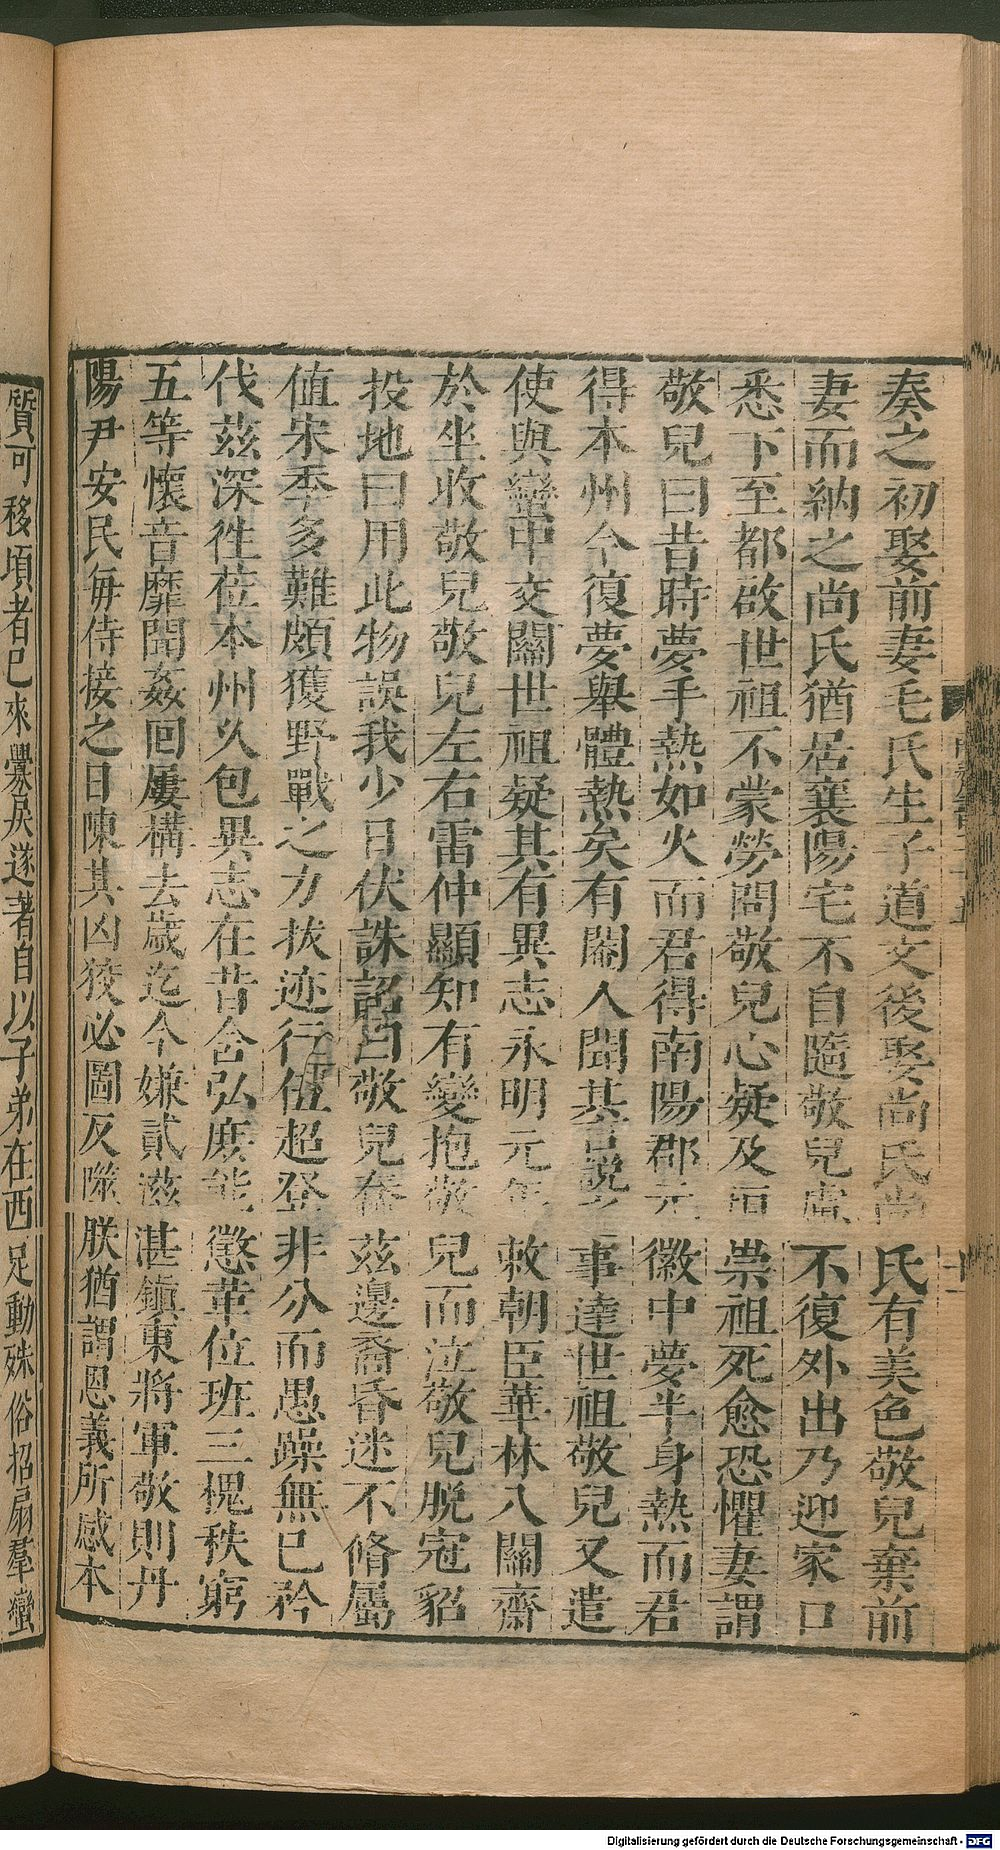 奏之初娶前妻毛氏生子道文後娶尚氏尚氏有美色敬兒棄前
妻而納之尚氏猶居襄陽宅不自隨敬兒慮不復外出乃迎家口
悉下至都啟世祖不蒙勞問敬兒心疑及垣崇祖死愈恐懼妻謂
敬兒曰昔時夢手熱如火而君得南陽郡元徽中夢半身熱而君
得本州今復夢舉體熱矣有閹人聞其言說之事達世祖敬兒又遣
使與蠻中交關世祖疑其有異志永明元年敕朝臣華林八關齋
於坐收敬兒敬兒左右雷仲顯知有變抱敬兒而泣敬兒脫冠貂
投地曰用此物誤我少日伏誅詔曰敬兒蠢茲邊裔昏迷不脩屬
值宋季多難頗獲野戰之力拔迹行伍超登非分而愚躁無已矜
伐茲深往莅本州久包異志在昔含弘庶能懲革位班三槐秩窮
五等懷音靡聞姦回屢構去歲迄今嫌貳滋甚鎮東將軍敬則丹
陽尹安民每侍接之日陳其凶狡必圖反噬朕猶謂恩義所感本
質可移頃者已來釁戾遂著自以子弟在西足動殊俗招扇羣蠻
Digitalisierung gefördert durch die Deutsche Forschungsgemeinschaft - DFG